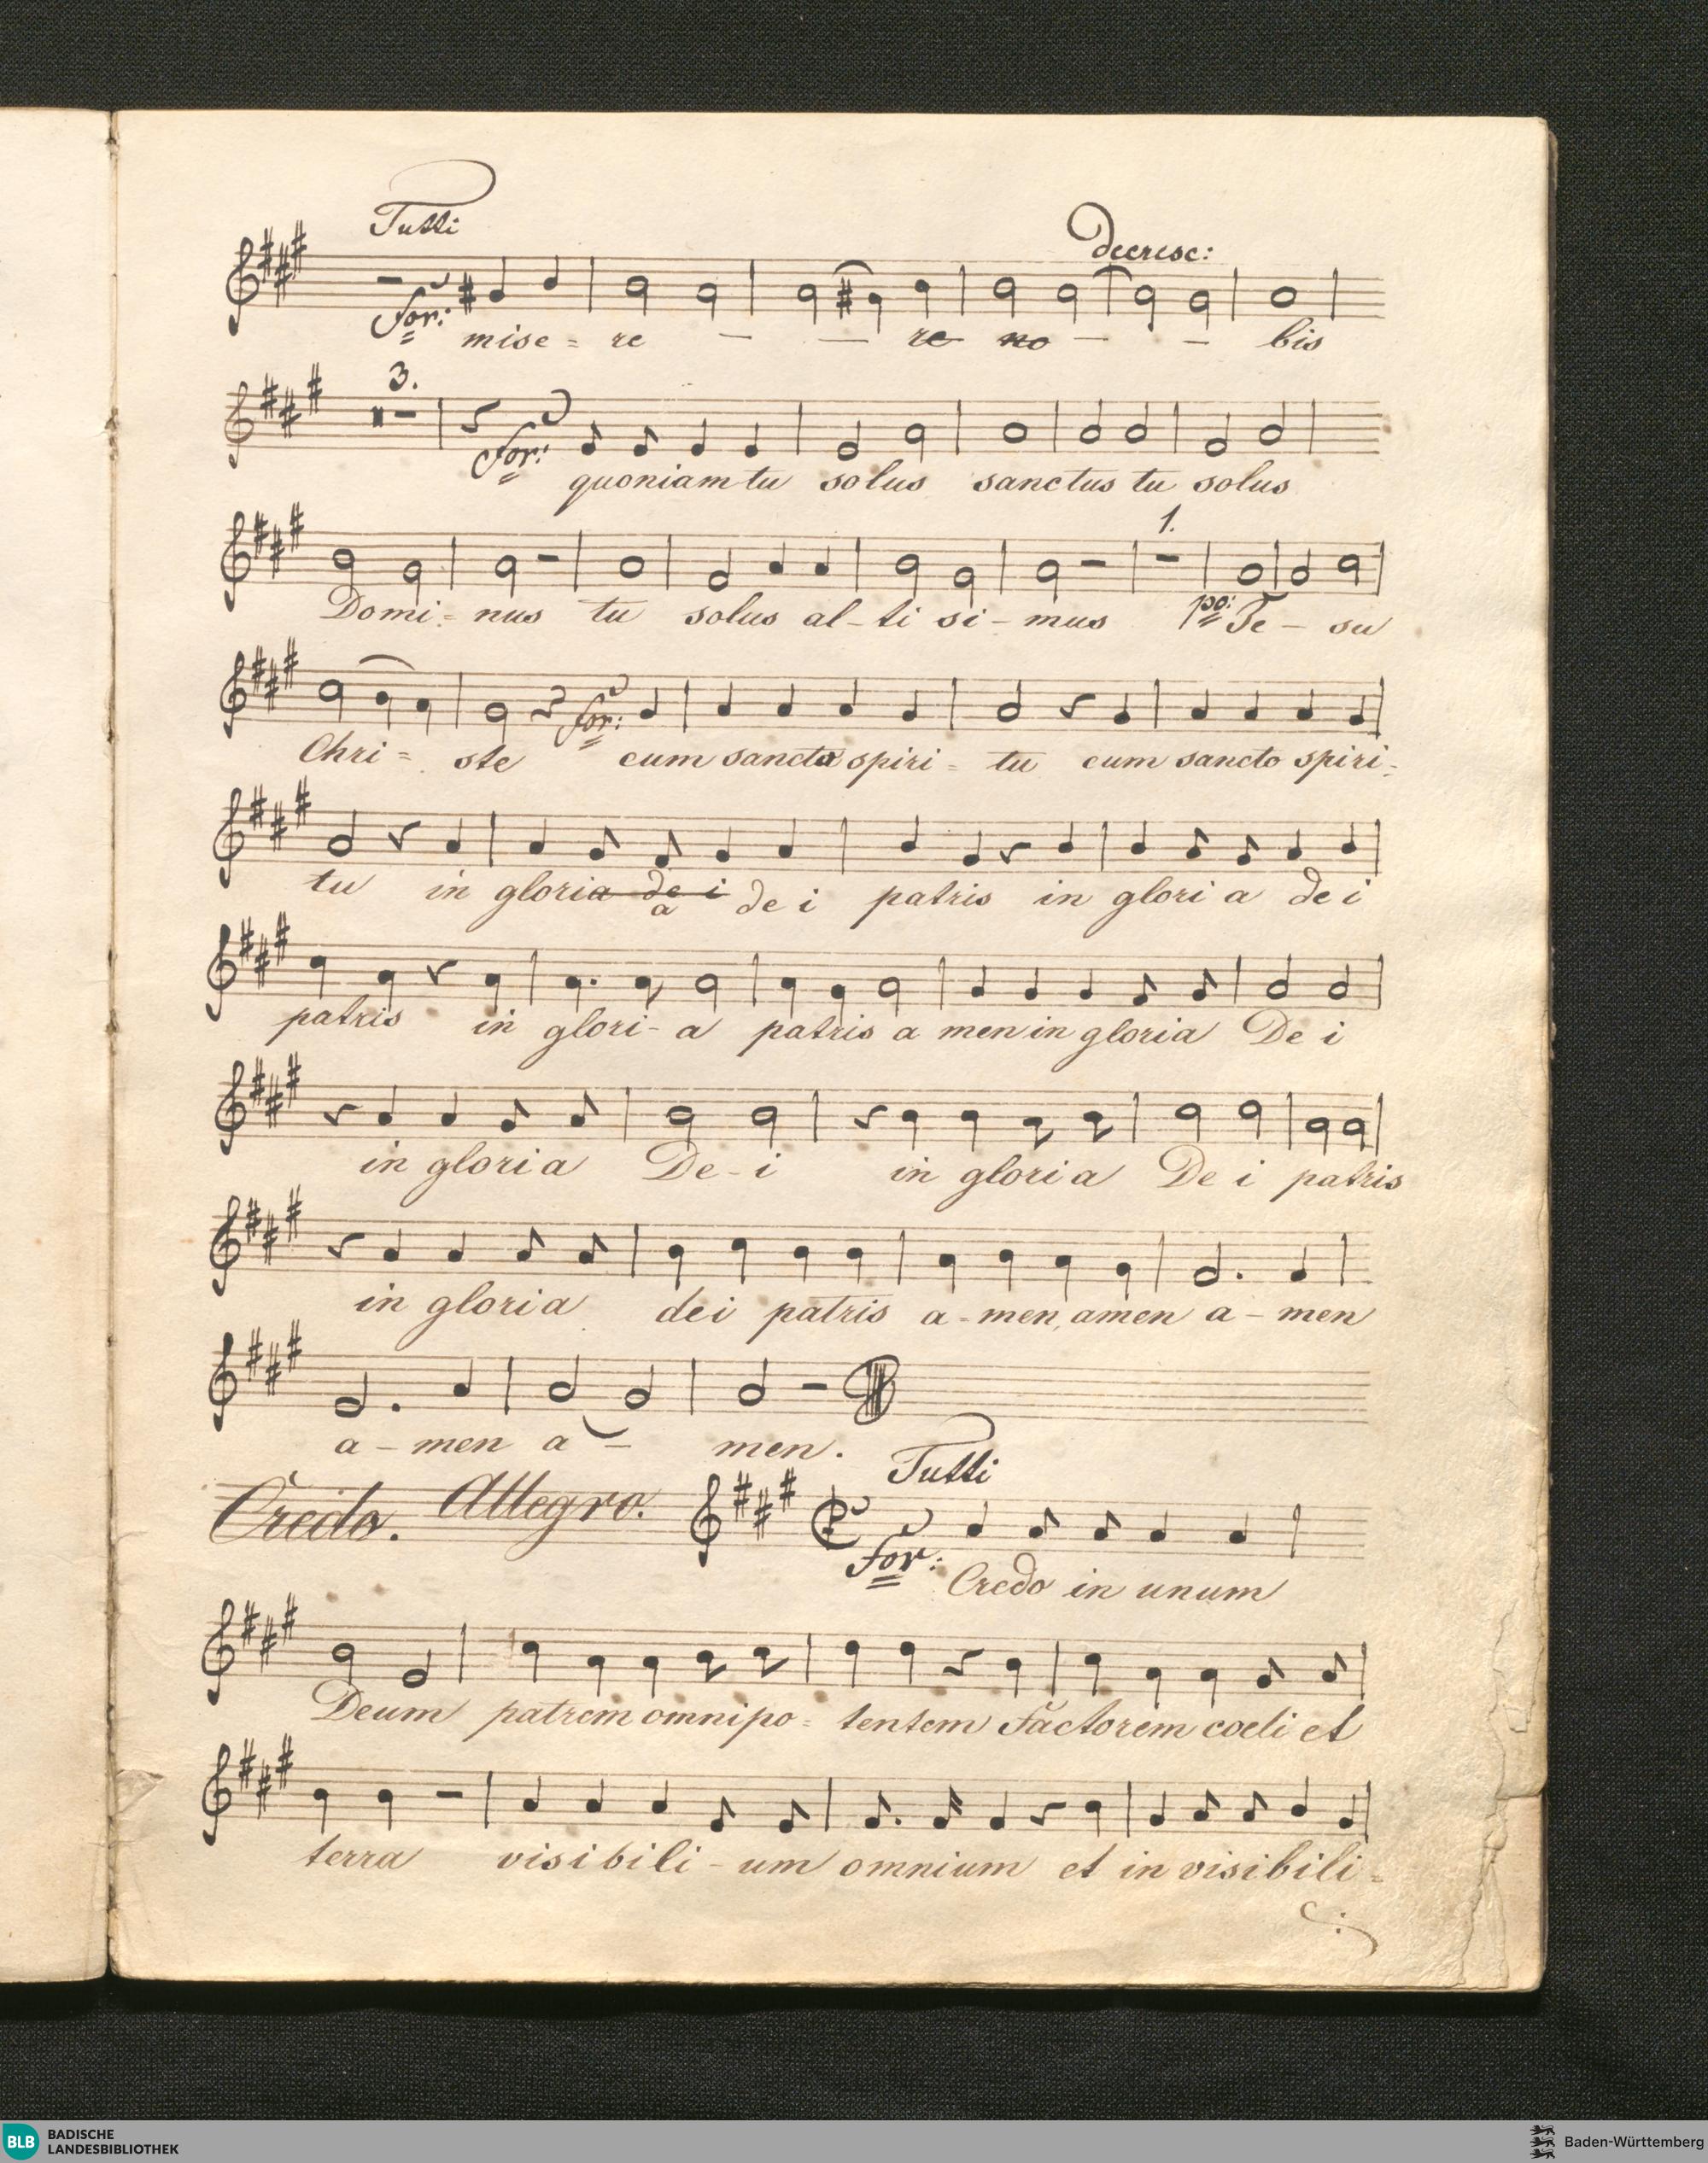 Tutti
decresc:
for: mise = re — — re no — — bis
3.
for: quoniam tu solus sanctus tu solus
1.
Domi = nus tu solus al - ti si - mus po: Je - su
Chri = ste for: cum sancto spiri = tu cum sancto spiri =
tu in gloria de i a de i patris in glori a de i
patris in glori - a patris a men in gloria De i
in gloria De - i in gloria De i patris
in gloria dei patris a = men, amen a - men
a - men a - men.
Tutti
Credo. Allegro.
for: Credo in unum
Deum patrem omnipo = tentem Factorem coeli et
terra visibili - um omnium et in visibili =
BLB BADISCHE
LANDESBIBLIOTHEK
Baden-Württemberg